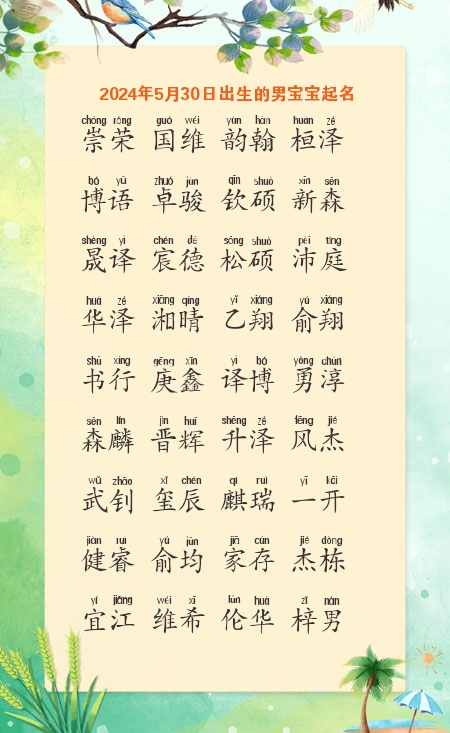 2024年5月30日出生的男宝宝起名
chóng róng guó wéi yùn hàn huán zé
崇荣 国维 韵翰 桓泽
bó yǔ zhuó jùn qīn shuò xīn sēn
博语 卓骏 钦硕 新森
shèng yì chén dé sōng shuò pèi tíng
晟译 宸德 松硕 沛庭
huá zé xiāng qíng yǐ xiáng yú xiáng
华泽 湘晴 乙翔 俞翔
shū xíng gēng xīn yì bó yǒng chún
书行 庚鑫 译博 勇淳
sēn lín jìn huī shēng zé fēng jié
森麟 晋辉 升泽 风杰
wǔ zhāo xǐ chén qí ruì yī kāi
武钊 玺辰 麒瑞 一开
jiàn ruì yú jūn jiā cún jié dòng
健睿 俞均 家存 杰栋
yí jiāng wéi xī lún huá zǐ nán
宜江 维希 伦华 梓男